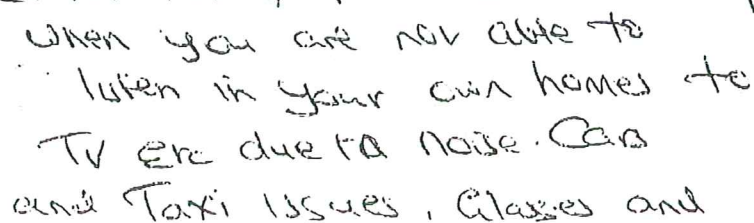 when you are not able to
listen in your own homes to
TV etc due to noise. Cars
and Taxi issues, Glasses and